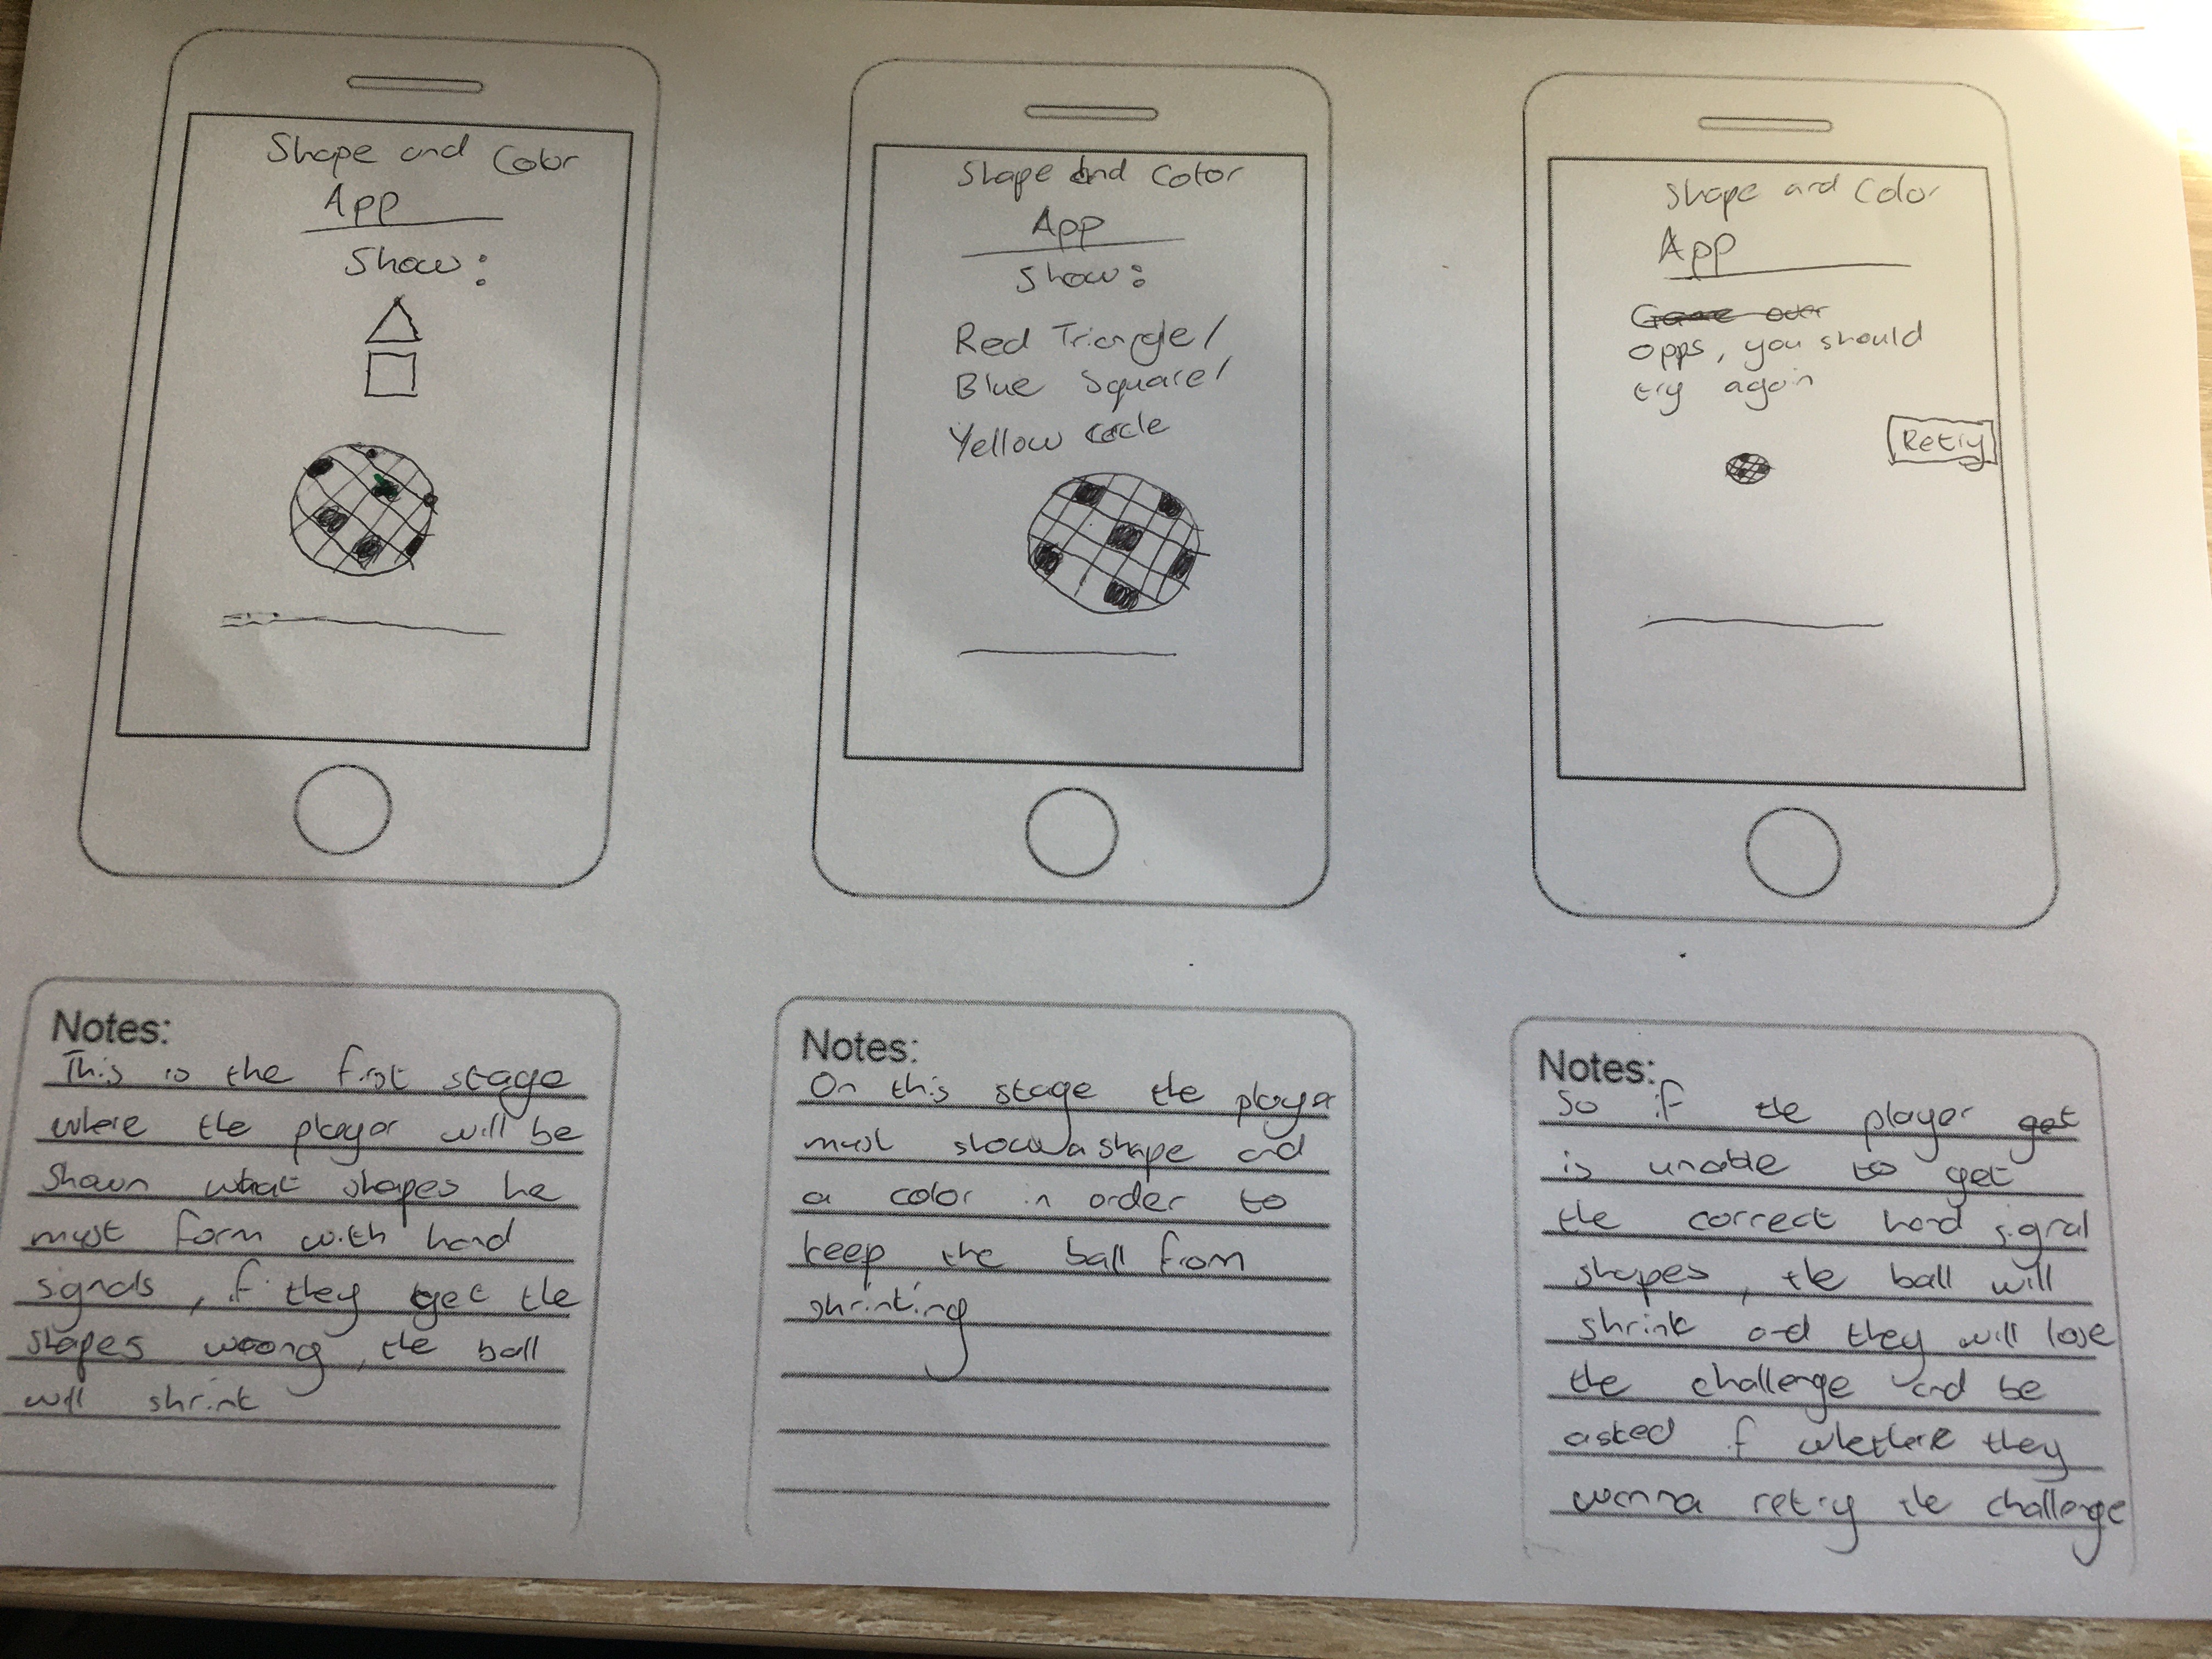 Shape and Color
App
Show:
Notes:
This is the first stage
where the player will be
shown what shapes he
must form with hand
signals, if they get the
shapes wrong, the ball
will shrink
Shape and Color
App
Show:
Red Triangle/
Blue Square/
Yellow circle
Notes:
On this stage the player
must show a shape and
a color in order to
keep the ball from
shrinking
Shape and Color
App
Game over
opps, you should
try again
Retry
Notes:
So if the player get
is unable to get
the correct hand signal
shapes, the ball will
shrink and they will lose
the challenge and be
asked if whethere they
wanna retry the challenge